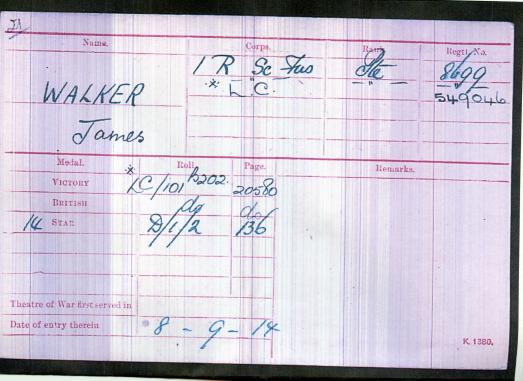 Name. Corps. Rank. Regtl. No.
1 R Sc Fus Pte 8699
* L.C. " 549046
WALKER
James
Medal. Roll. Page. Remarks.
VICTORY * LC/101 B202. 20580
BRITISH do do
14 STAR D/1/2 136
Theatre of War first served in
Date of entry therein 8 - 9 - 14
K. 1380.